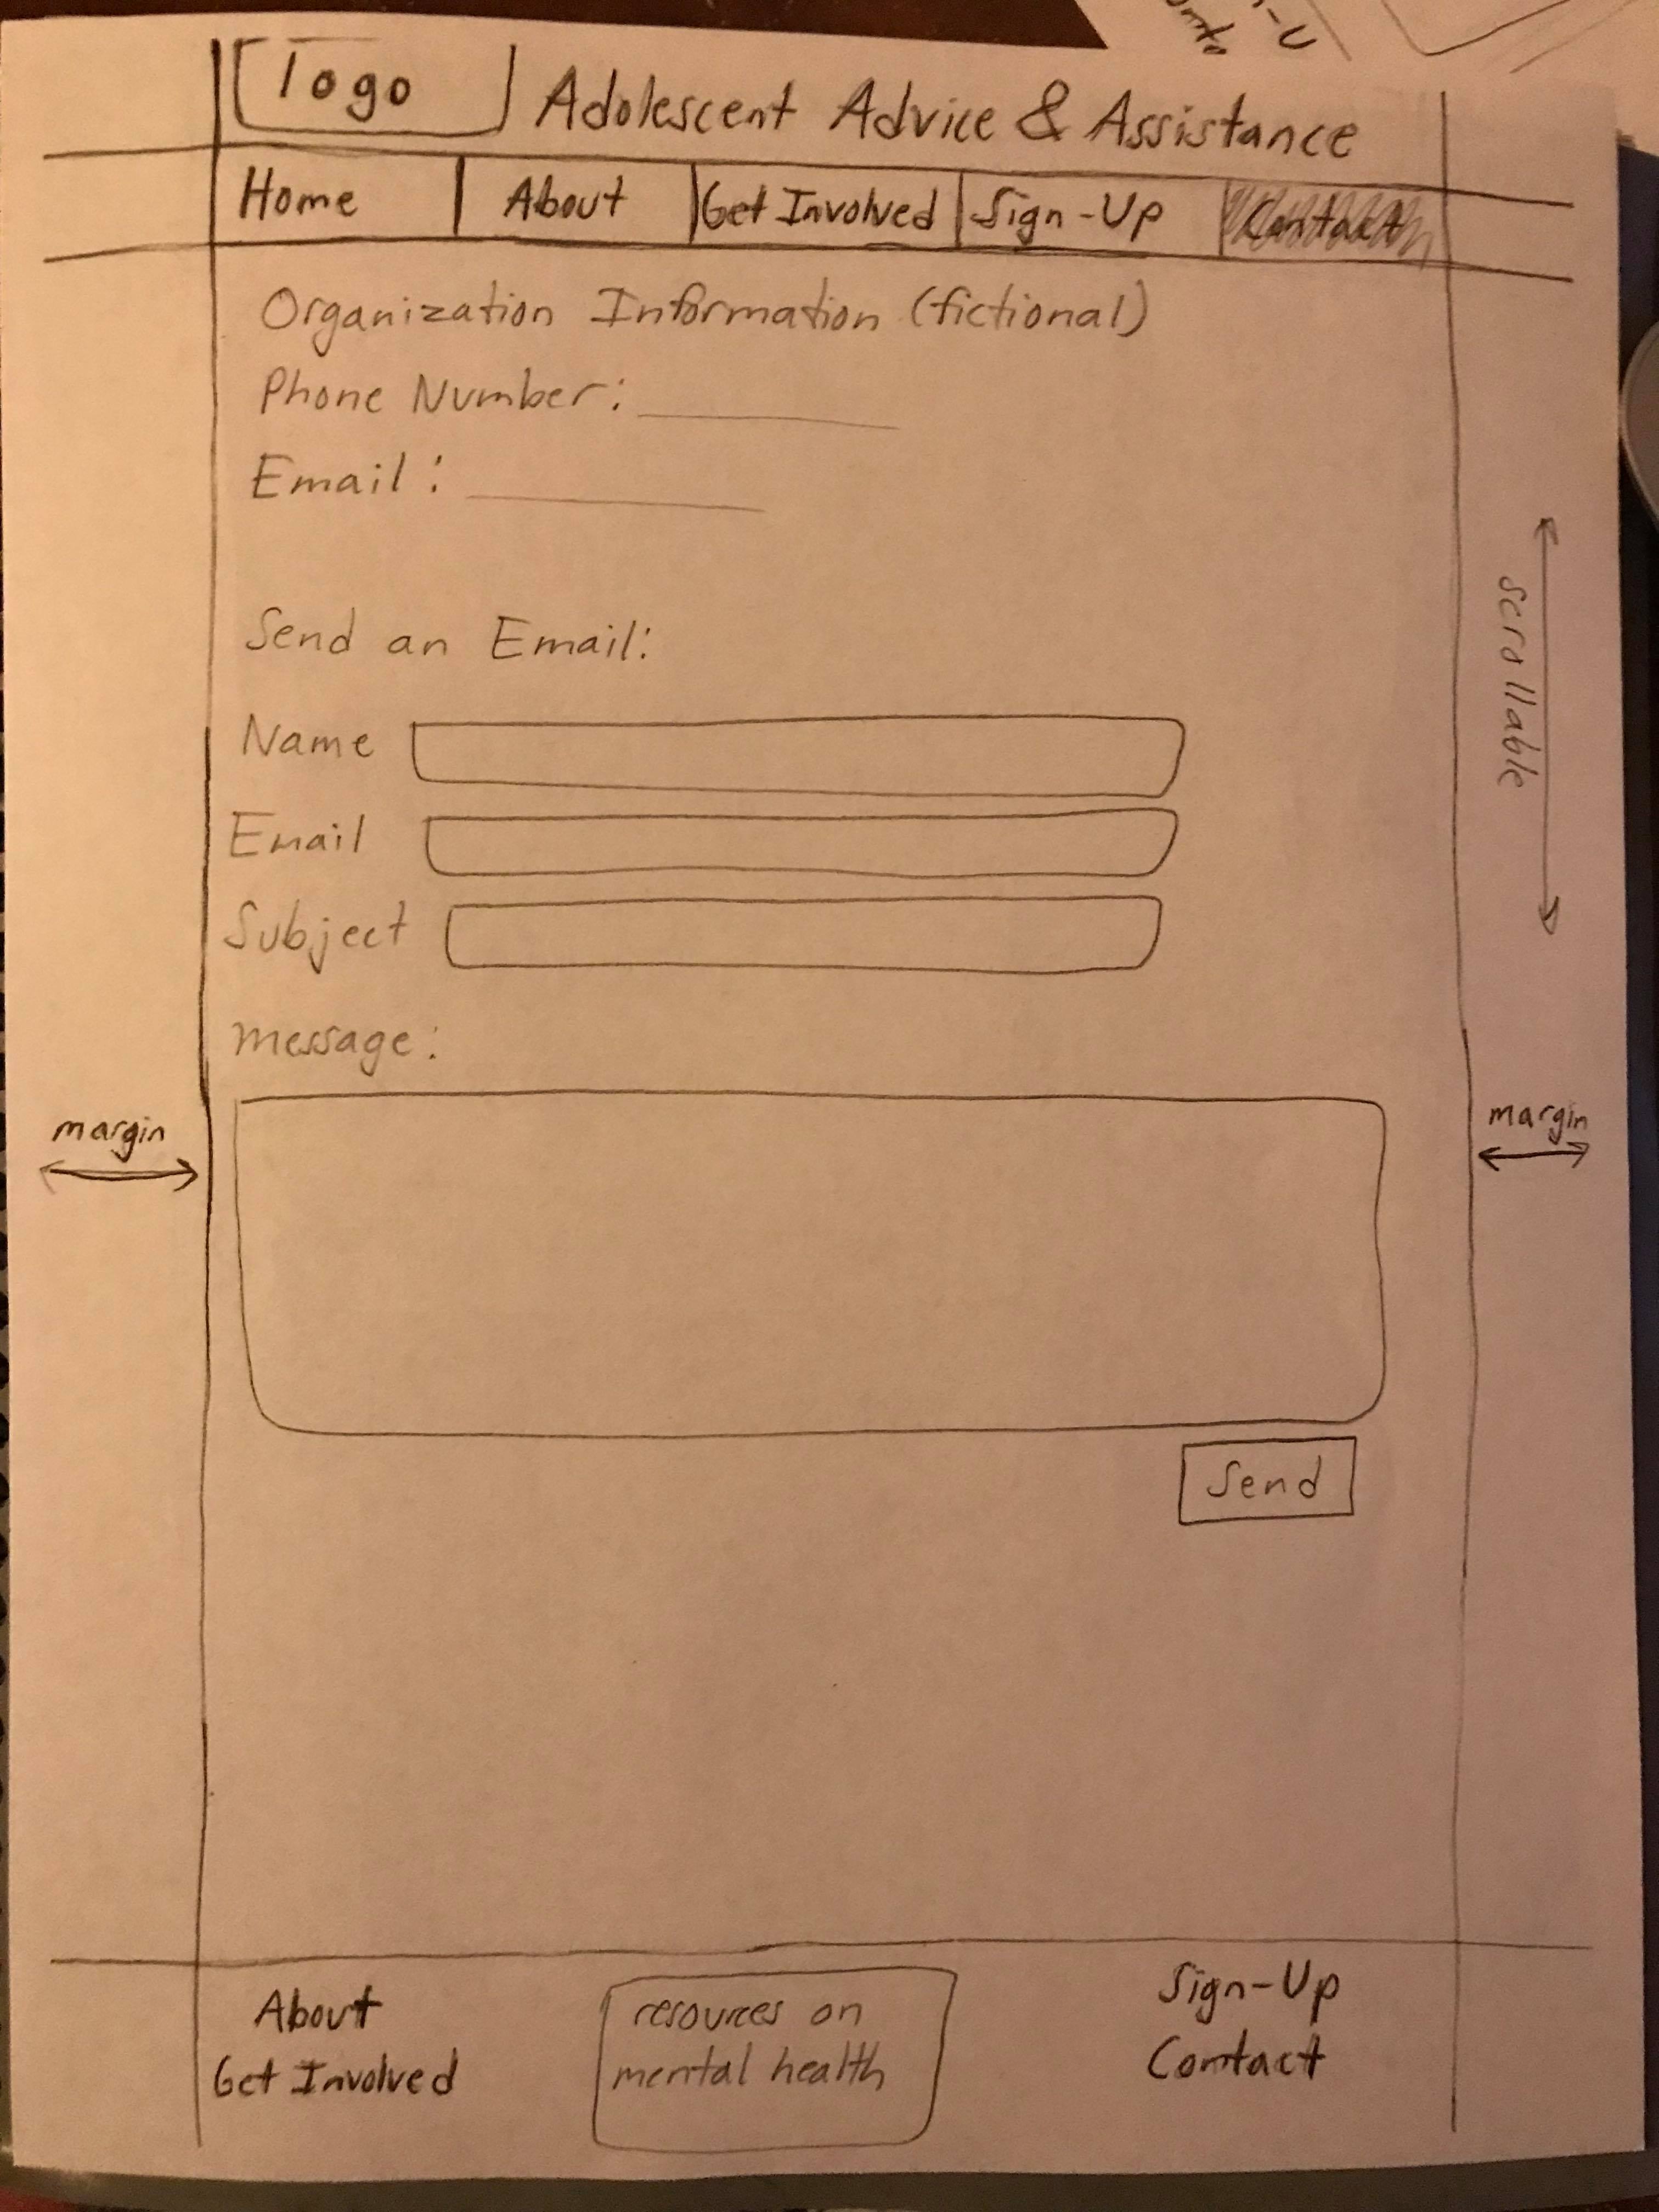 logo
Adolescent Advice & Assistance
Home About Get Involved Sign-Up Contact
Organization Information (fictional)
Phone Number:
Email:
scrollable
Send an Email:
Name
Email
Subject
message:
margin
margin
Send
About
Get Involved
resources on
mental health
Sign-Up
Contact